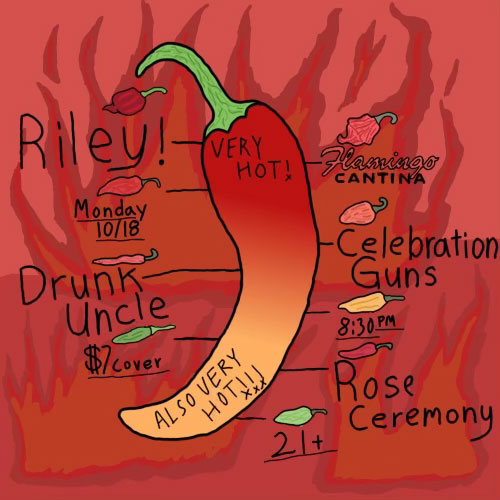 Riley!
VERY
HOT!
Flamingo
CANTINA
Monday
10/18
Celebration
Guns
Drunk
Uncle
8:30 PM
$7 cover
Rose
Ceremony
ALSO VERY
HOT!!! xxx
21+